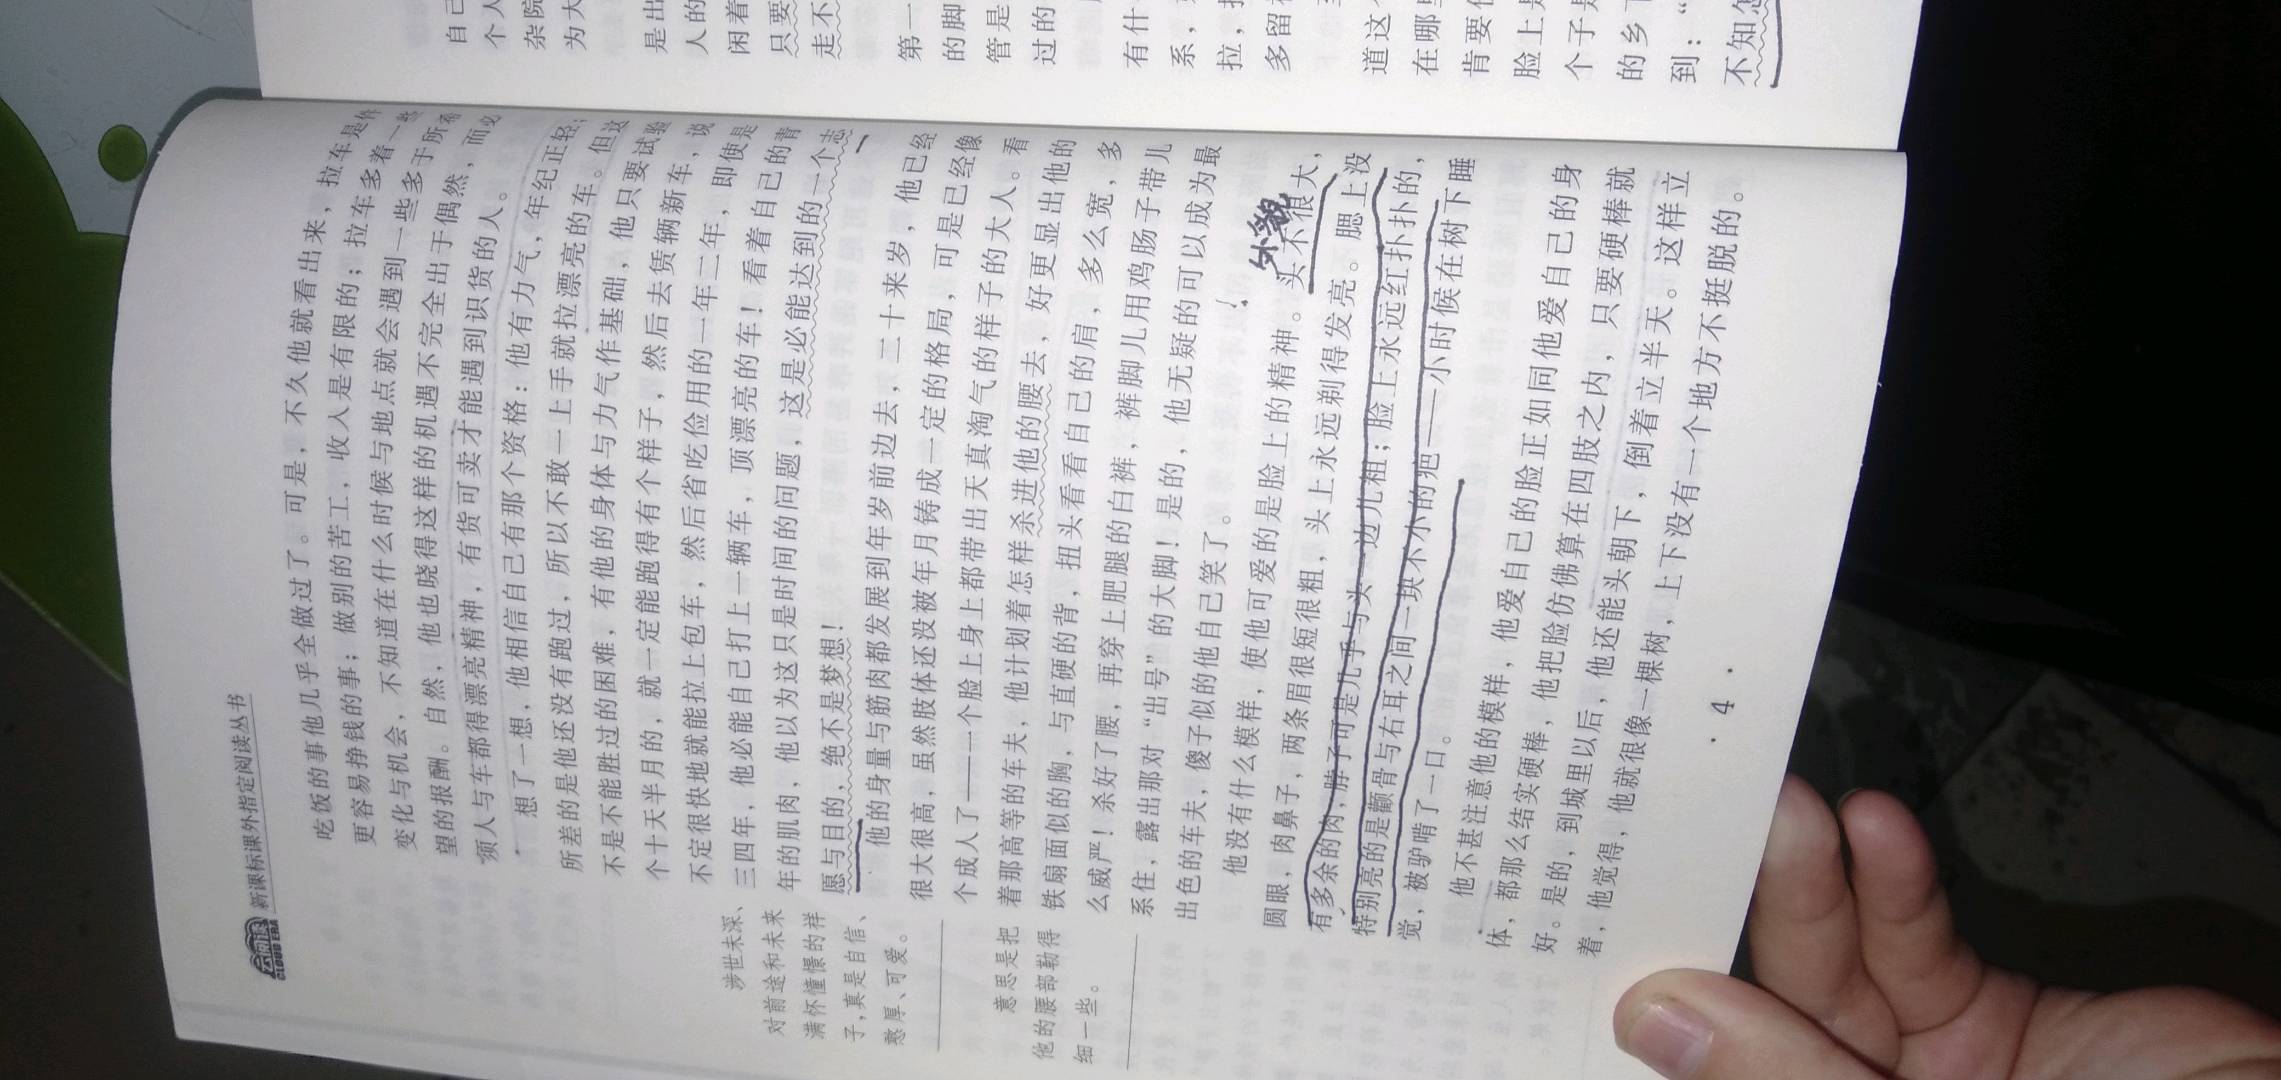 云阅读
CLOUD ERA
新课标课外指定阅读丛书
吃饭的事他几乎全做过了。可是,不久他就看出来,拉车是件
更容易挣钱的事;做别的苦工,收入是有限的;拉车多着一些
变化与机会,不知道在什么时候与地点就会遇到一些多于所希
望的报酬。自然,他也晓得这样的机遇不完全出于偶然,而必
须人与车都得漂亮精神,有货可卖才能遇到识货的人。
想了一想,他相信自己有那个资格:他有力气,年纪正轻;
所差的是他还没有跑过,所以不敢一上手就拉漂亮的车。但这
不是不能胜过的困难,有他的身体与力气作基础,他只要试验
个十天半月的,就一定能跑得有个样子,然后去赁辆新车,说
不定很快地就能拉上包车,然后省吃俭用的一年二年,即使是
三四年,他必能自己打上一辆车,顶漂亮的车!看着自己的青
年的肌肉,他以为这只是时间的问题,这是必能达到的一个志
愿与目的,绝不是梦想!
他的身量与筋肉都发展到年岁前边去,二十来岁,他已经
很大很高,虽然肢体还没被年月铸成一定的格局,可是已经像
个成人了——一个脸上身上都带出天真淘气的样子的大人。看
着那高等的车夫,他计划着怎样杀进他的腰去,好更显出他的
铁扇面似的胸,与直硬的背,扭头看看自己的肩,多么宽,多
么威严!杀好了腰,再穿上肥腿的白裤,裤脚儿用鸡肠子带儿
系住,露出那对“出号”的大脚!是的,他无疑的可以成为最
出色的车夫,傻子似的他自己笑了。
他没有什么模样,使他可爱的是脸上的精神。头不很大,
外貌
圆眼,肉鼻子,两条眉很短很粗,头上永远剃得发亮。腮上没
有多余的肉,脖子可是几乎与头一边儿粗;脸上永远红扑扑的,
特别亮的是颧骨与右耳之间一块不小的疤——小时候在树下睡
觉,被驴啃了一口。
他不甚注意他的模样,他爱自己的脸正如同他爱自己的身
体,都那么结实硬棒,他把脸仿佛算在四肢之内,只要硬棒就
好。是的,到城里以后,他还能头朝下,倒着立半天。这样立
着,他觉得,他就很像一棵树,上下没有一个地方不挺脱的。
涉世未深、
对前途和未来
满怀憧憬的样
子,真是自信、
憨厚、可爱。
意思是把
他的腰部勒得
细一些。
· 4 ·
自己
个人
杂院
为大
是出
人的
闲着
只要
走不
第一
的脚
管是
过的
有什
系,
拉,
多留
道这
在哪
肯要
脸上是
个子是
的乡下
到:“
不知怎